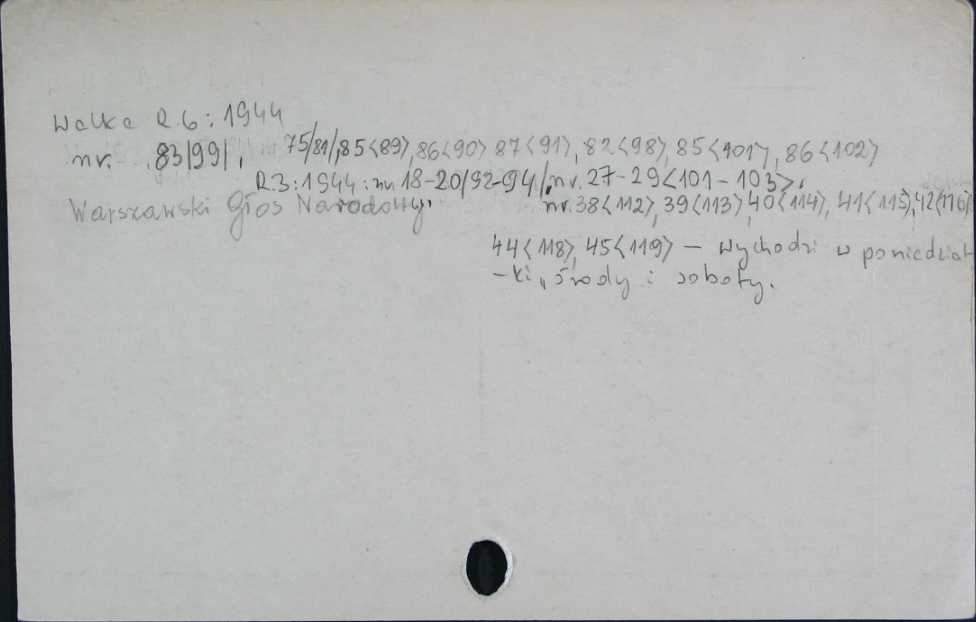 Walka R.6: 1944
nr. 83/99/, 75/81/, 85<89>, 86<90> 87<91>, 82<98>, 85<101>, 86<102>
R.3: 1944: nr 18-20/92-94/, nr. 27-29<101-103>.
Warszawski Głos Narodowy. nr. 38<112>, 39<113>, 40<114>, 41<115>, 42<116>
44<118>, 45<119> — wychodzi w poniedział
-ki, środy i soboty.